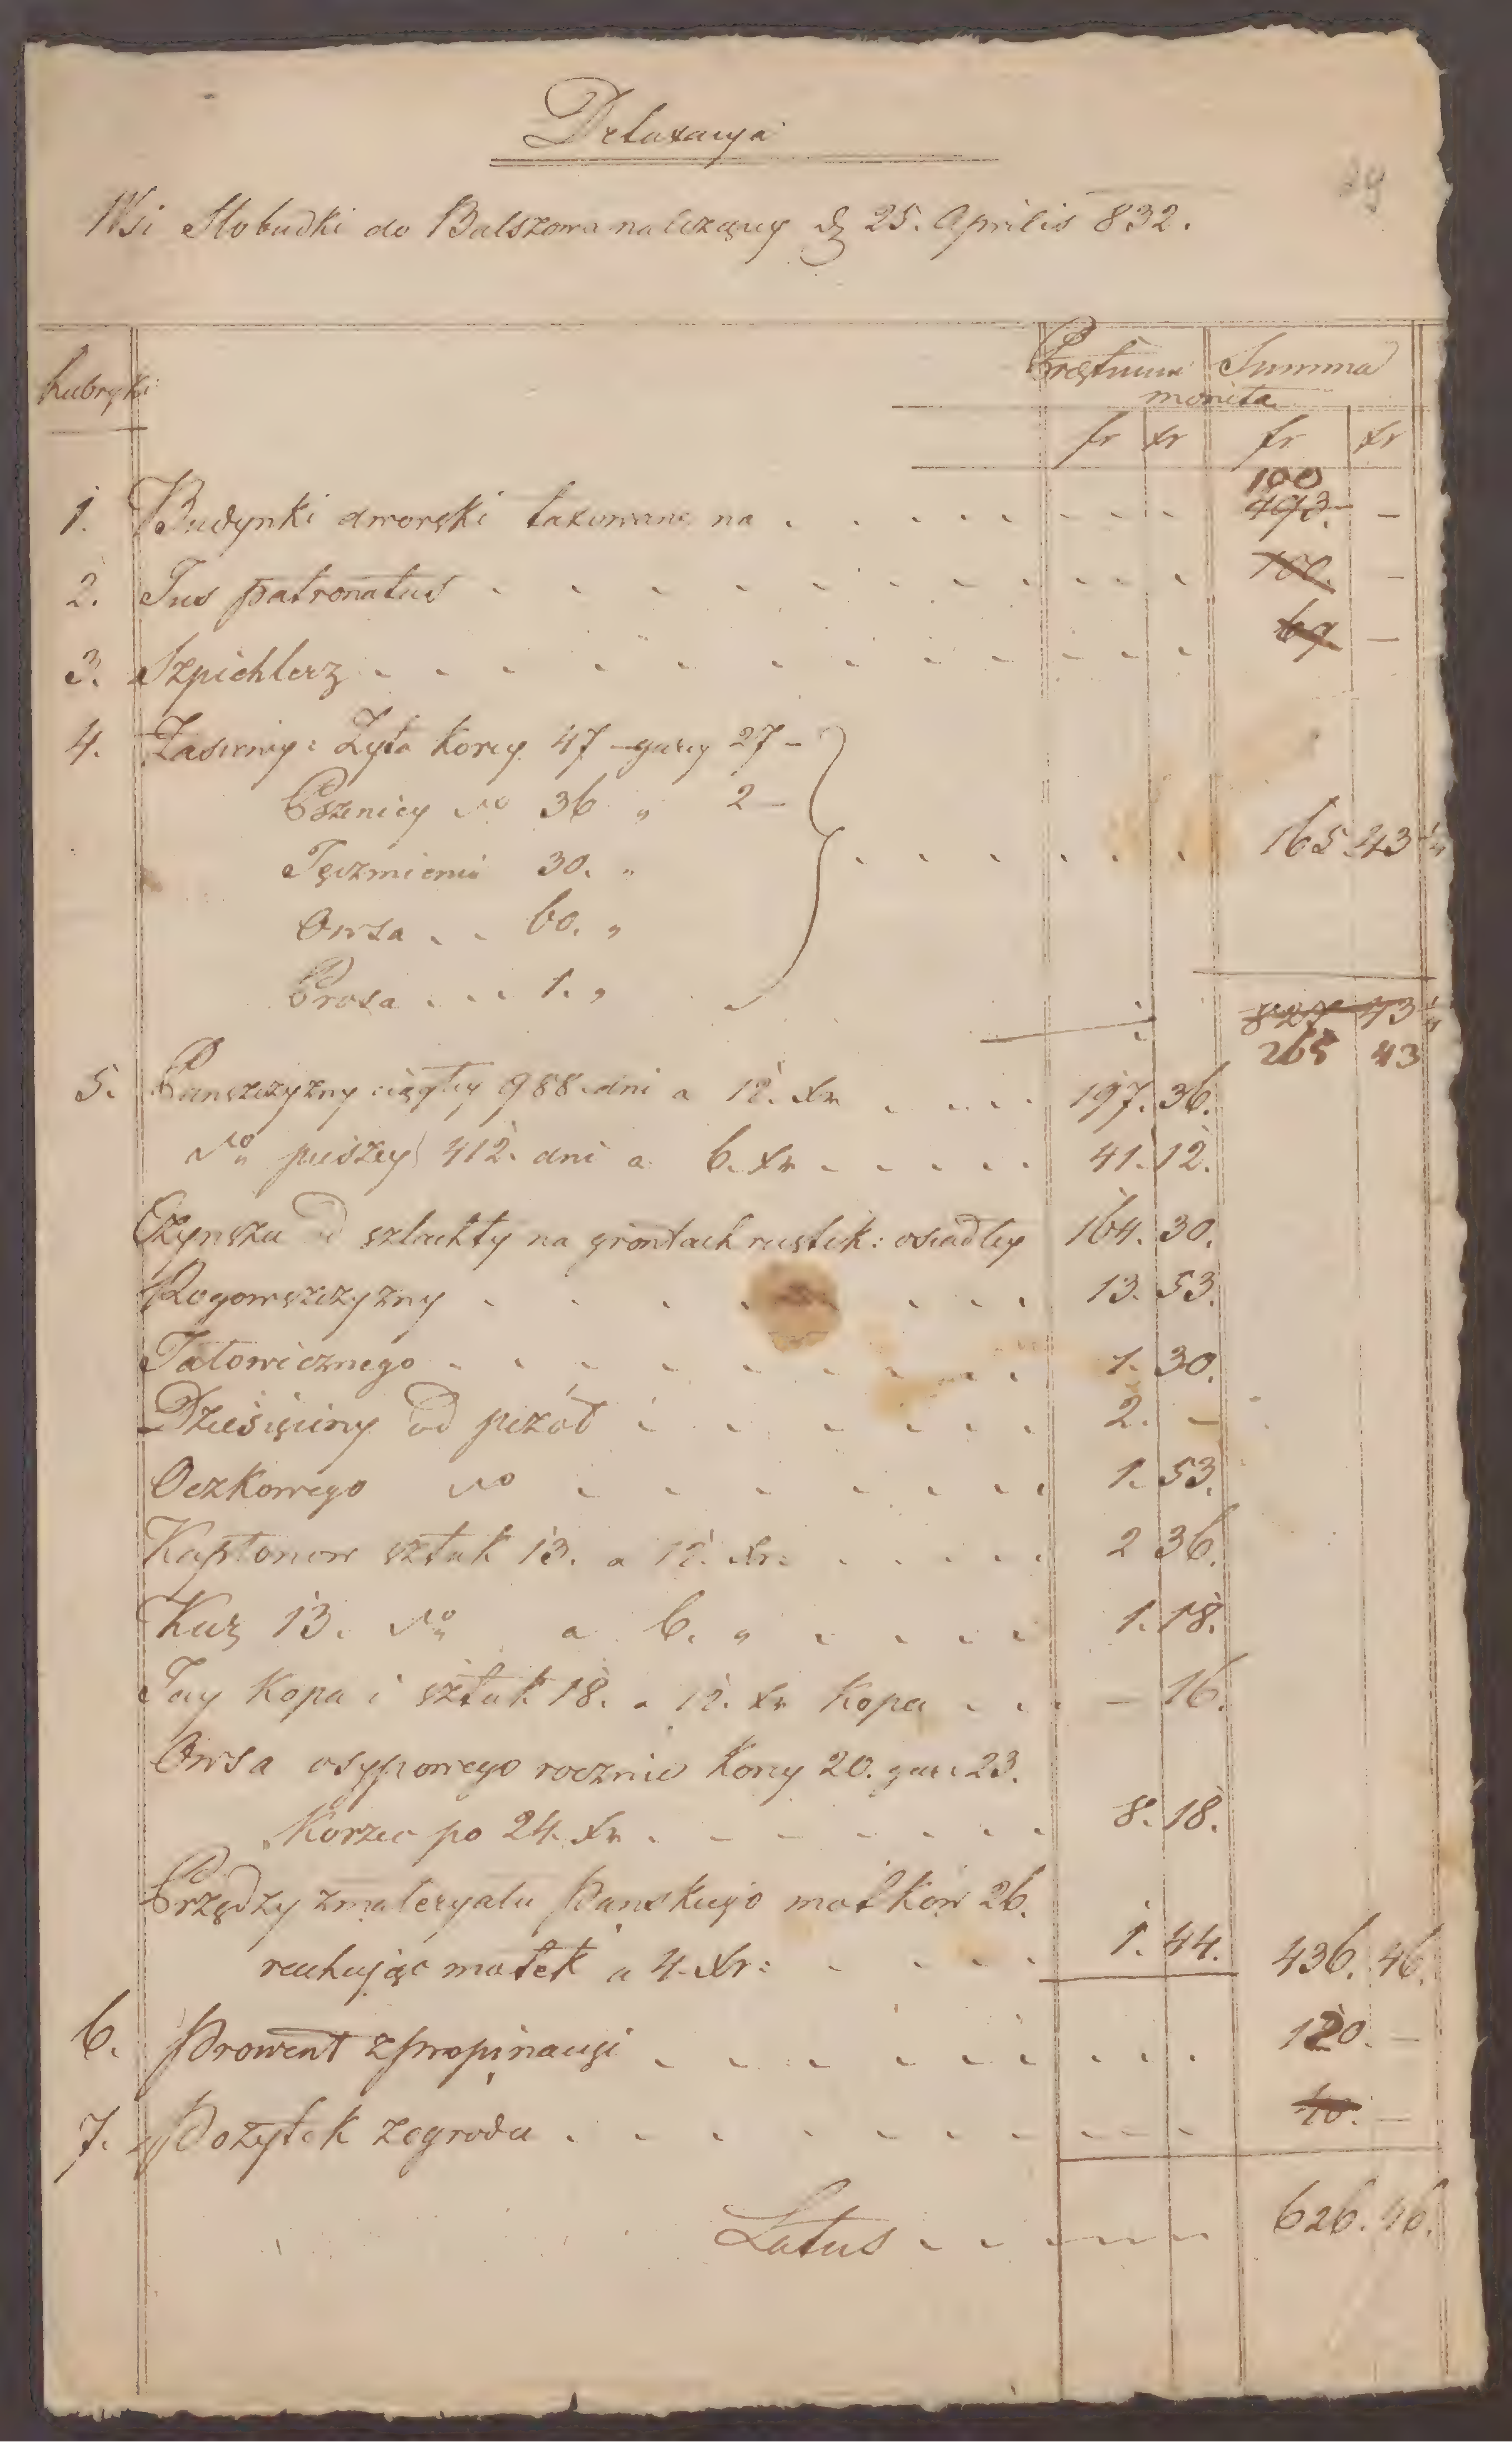 Detaxacyja
29
Wsi Słobudki do Balszowa należący d. 25. Aprilis 832.
Rubryki Praetium Summa
monita
fr xr fr xr
100
1. Budynki dworski taxowane na . . . . . . . . 493. -
2. Jus patronatus . . . . . . . . . . 100. -
3. Szpichlerz . . . . . . . . . . . 69. -
4. Zasiewy: Żyta korcy 47 - garcy 27 -
Pszenicy do 36 " 2 -
Jęczmienia 30. " . . . . . . 165 43 1/4
Owsa . . 60. "
Prosa . . . 1. "
827 43 1/4
265 43
5. Panszczyzny ciągłey 988 dni a 12. xr . . . . 197. 36.
do pieszey 412. dni a 6. xr . . . . . 41. 12.
Czynszu od szlachty na grontach rustik: osiadłey 164. 30.
Rogowszczyzny . . . . . . . 13. 53.
Jałowicznego . . . . . . . . 1. 30.
Dziesięciny od pszół . . . . . . . 2. -
Oczkowego do . . . . . . . 1. 53.
Kapłonow sztuk 13. a 12. xr: . . . . . 2 36.
Kur 13. do a 6. " . . . . 1. 18.
Jay kopa i sztuk 18. a 12. xr kopa . . . - 16.
Owsa osypowego rocznie korcy 20. gar: 23.
Korzec po 24. xr . . . . . . . 8. 18.
Przędzy z materyału Panskiego motkow 26.
rachując motek a 4. xr: . . . . 1. 44. 436. 46.
6. Prowent z propinacyi . . . . . . . . . 120. -
7. Pożytek z ogrodu . . . . . . . . . . 40. -
Latus . . . . . 626. 46.